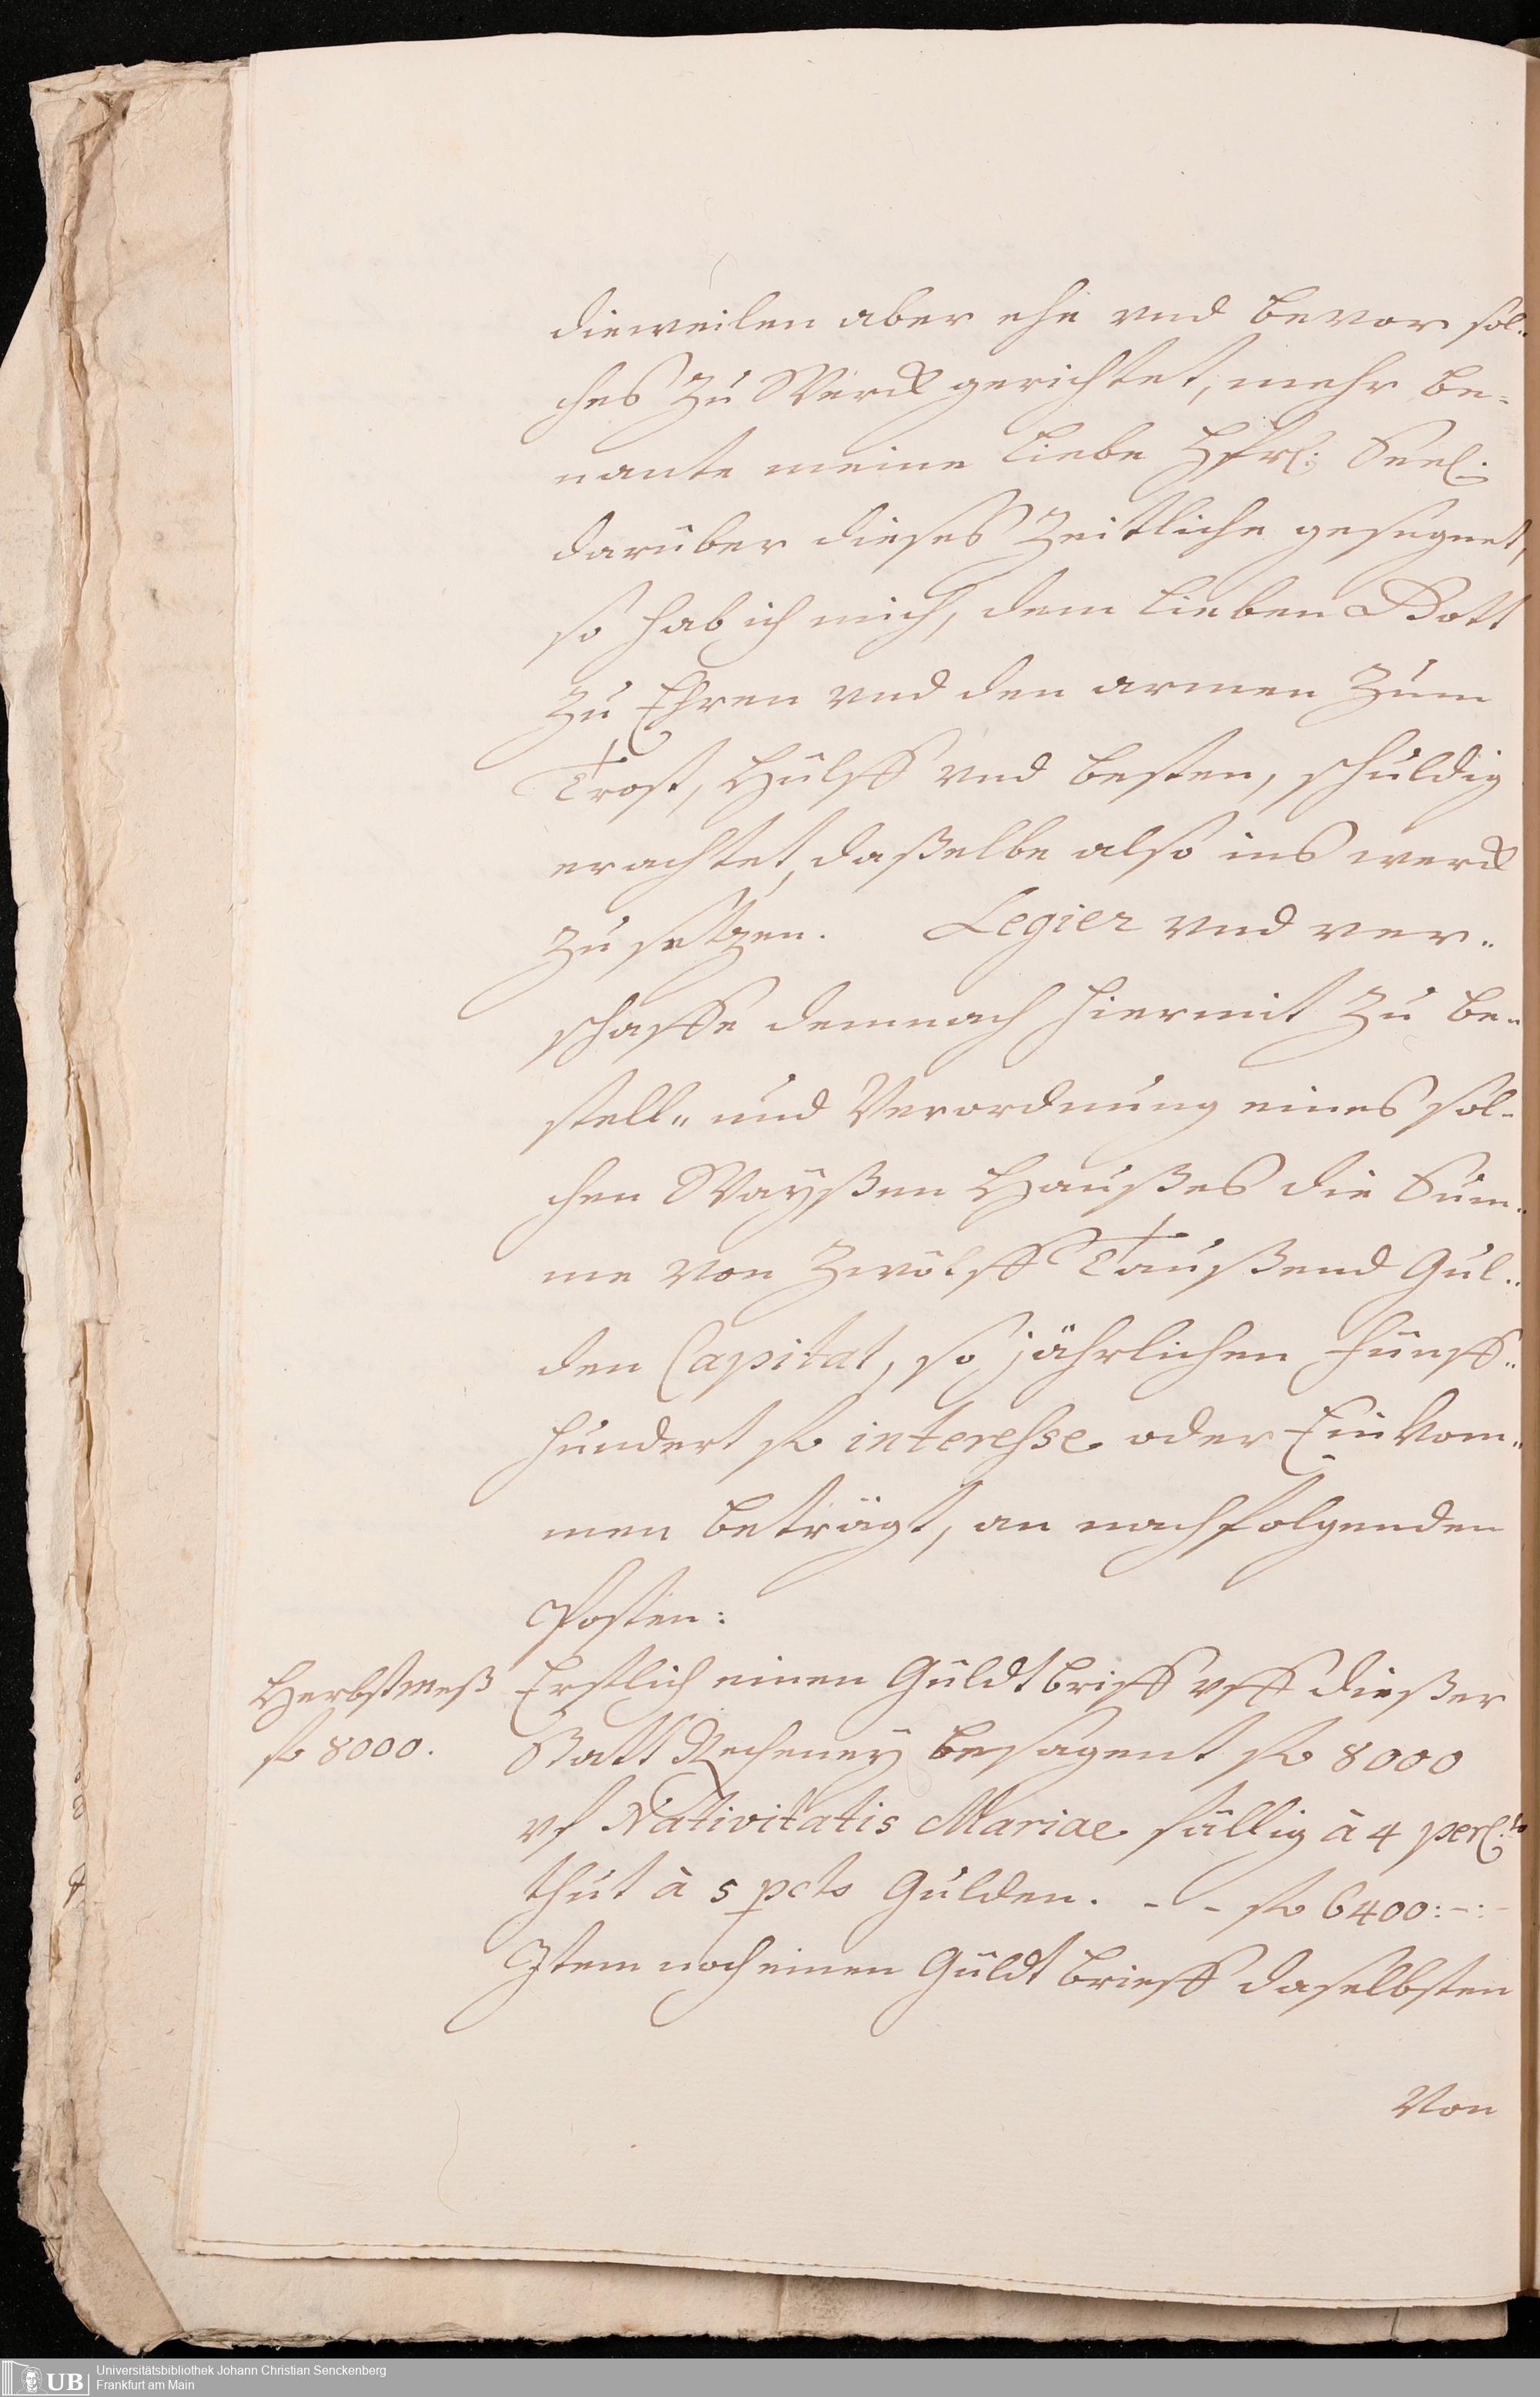 dieweilen aber ehe vnd bevor sol¨
ches zu Werck gerichtet, mehr be¨
nante meine Liebe Haußfr: Seel:
darüber dieses Zeitliche gesegnet,
so hab ich mich, dem Lieben Gott
zu Ehren vnd den armen zum
Trost, Hülff vnd besten, schuldig
erachtet, daßelbe also ins werck
zu setzen. Legier vnd ver¨
schaffe demnach hiermit zu be¨
stell¨ und Verordnung eines sol¨
chen Wayßen Haußes die Sum¨
me von Zwölff Taußend Gul¨
den Capital, so jährlichen fünff¨
hundert fl interesse oder Einkom¨
men beträgt, an nachfolgenden
Posten:
Herbstmeß
fl 8000.
Erstlich einen Güldtbrieff vff dießer
Statt Recheney besagent fl 8000
vf Nativitatis Mariae fällig à 4 perC:to
thut à 5 pcto Gulden. - - fl 6400:-:-
Item noch einen Güldt brieff daselbsten
Von
UB
Universitätsbibliothek Johann Christian Senckenberg
Frankfurt am Main